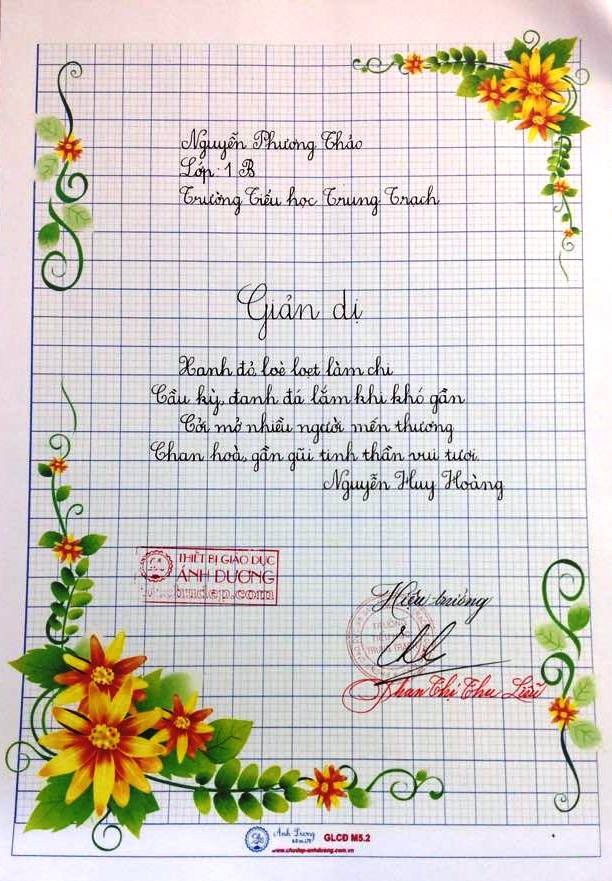 Nguyễn Phương Thảo
Lớp 1 B
Trường Tiểu học Trung Trạch
Giản dị
Xanh đỏ, loè loẹt làm chi
Cầu kỳ, đanh đá lắm khi khó gần
Cởi mở nhiều người mến thương
Chan hoà, gần gũi tinh thần vui tươi.
Nguyễn Huy Hoàng
THIẾT BỊ GIÁO DỤC
ÁNH DƯƠNG
chudep.com
Hiệu trưởng
TRƯỜNG
TIỂU HỌC
TRUNG TRẠCH
Phan Thị Thu Liễu
Ánh Dương
GLCĐ M5.2
www.chudep-anhduong.com.vn